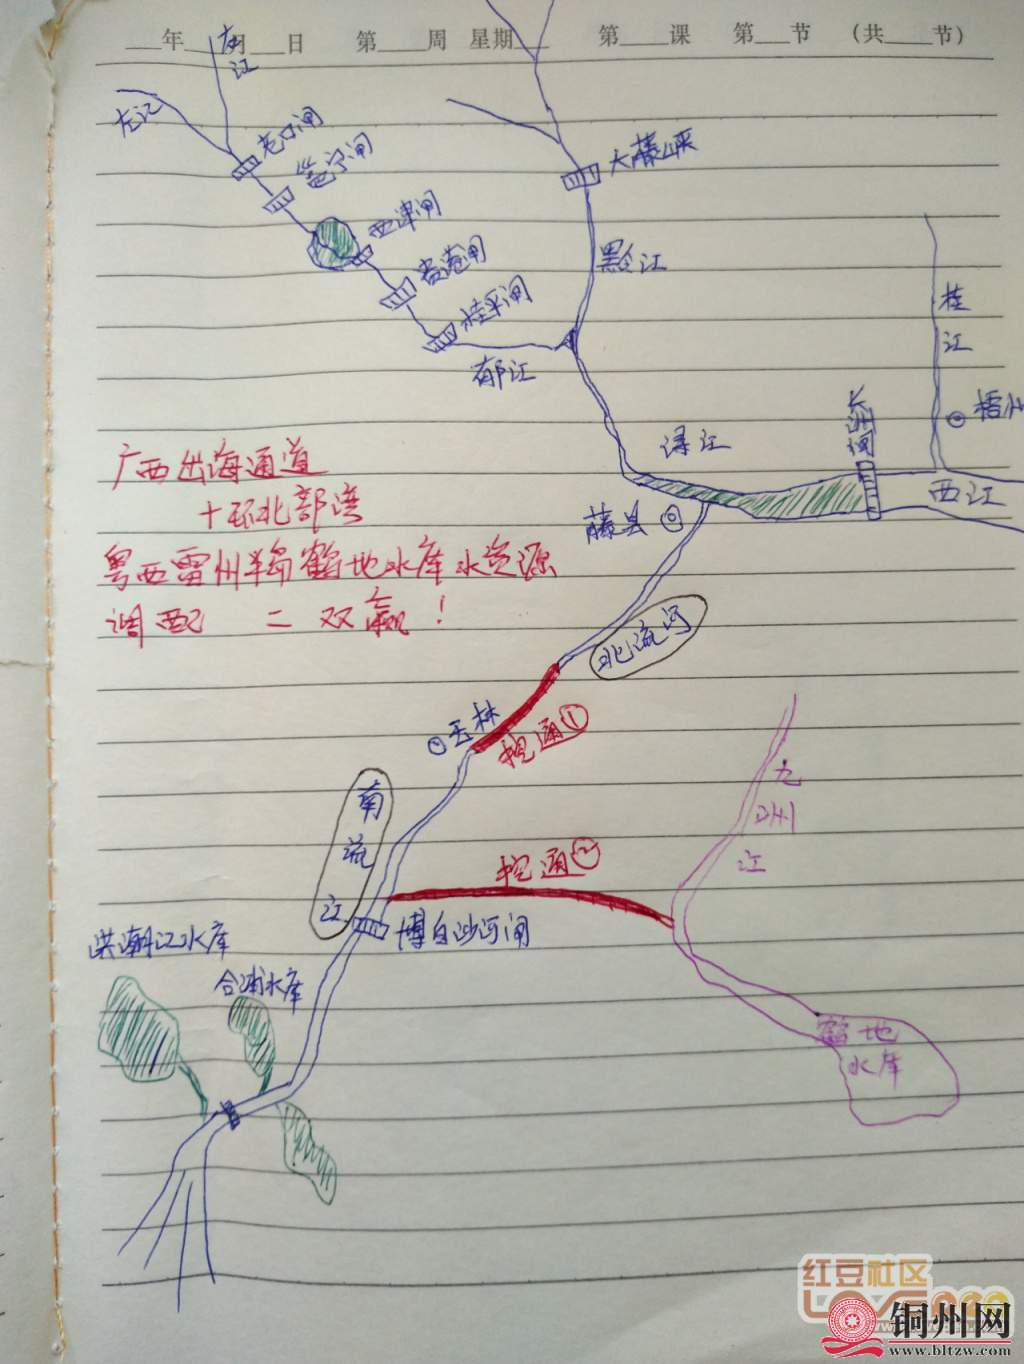 ___年___月___日 第____周 星期___ 第____课 第___节 (共____节)
右江
左江
老口闸
邕宁闸
西津闸
贵港闸
桂平闸
郁江
大藤峡
黔江
桂江
梧州
长洲闸
浔江
西江
藤县
广西出海通道
十环北部湾
粤西雷州半岛鹤地水库水资源
调配 二双赢!
北流河
玉林
挖通①
南流江
九洲江
挖通②
博白沙河闸
洪潮江水库
合浦水库
鹤地
水库
红豆社区
铜州网
www.bltzw.com